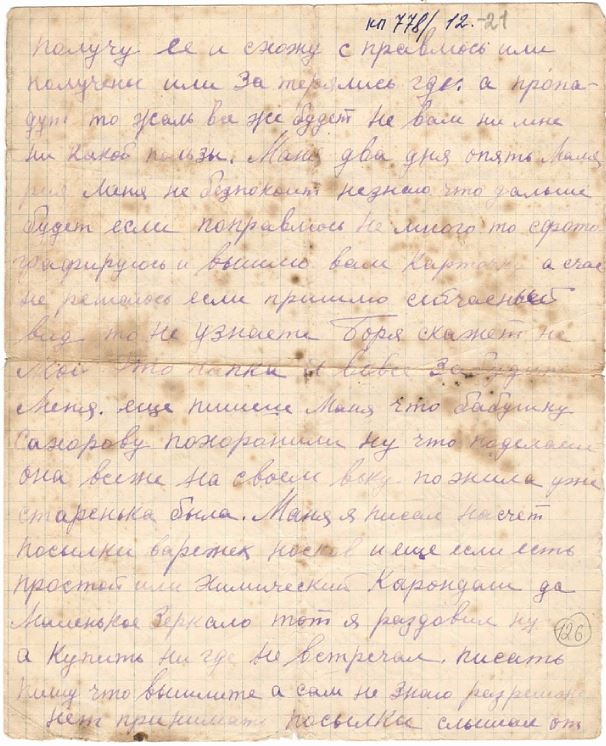 кп 778/12.-21
получу ее и схожу справлюсь или
получены или Затерялись где. а пропа-
дут то жаль все же будет не вам ни мне
ни какой пользы. Маня два дня опять Маля
рия Меня не безпокоит незнаю что дальше
будет если поправлюсь не много то сфото
графируюсь и вышлю вам Карточку а счас
не решаюсь если пришлю сейчасный
вид то не узнаете Боря скажет не
Мой это папка и вовсе
Меня. еще пишеш Маня что бабушку
Сахорову похоронили ну что поделаеш
она всеже на своем веку пожила уже
старенька была. Маня я писал насчет
посылки варежек носков и еще если есть
простой или Химический Карондаш да
Маленькое Зеркало тот я раздовил ну
а Купить ни где не встречал. писать
пишу что вышлите а сам не знаю
нет принимать посылки слышал от
126